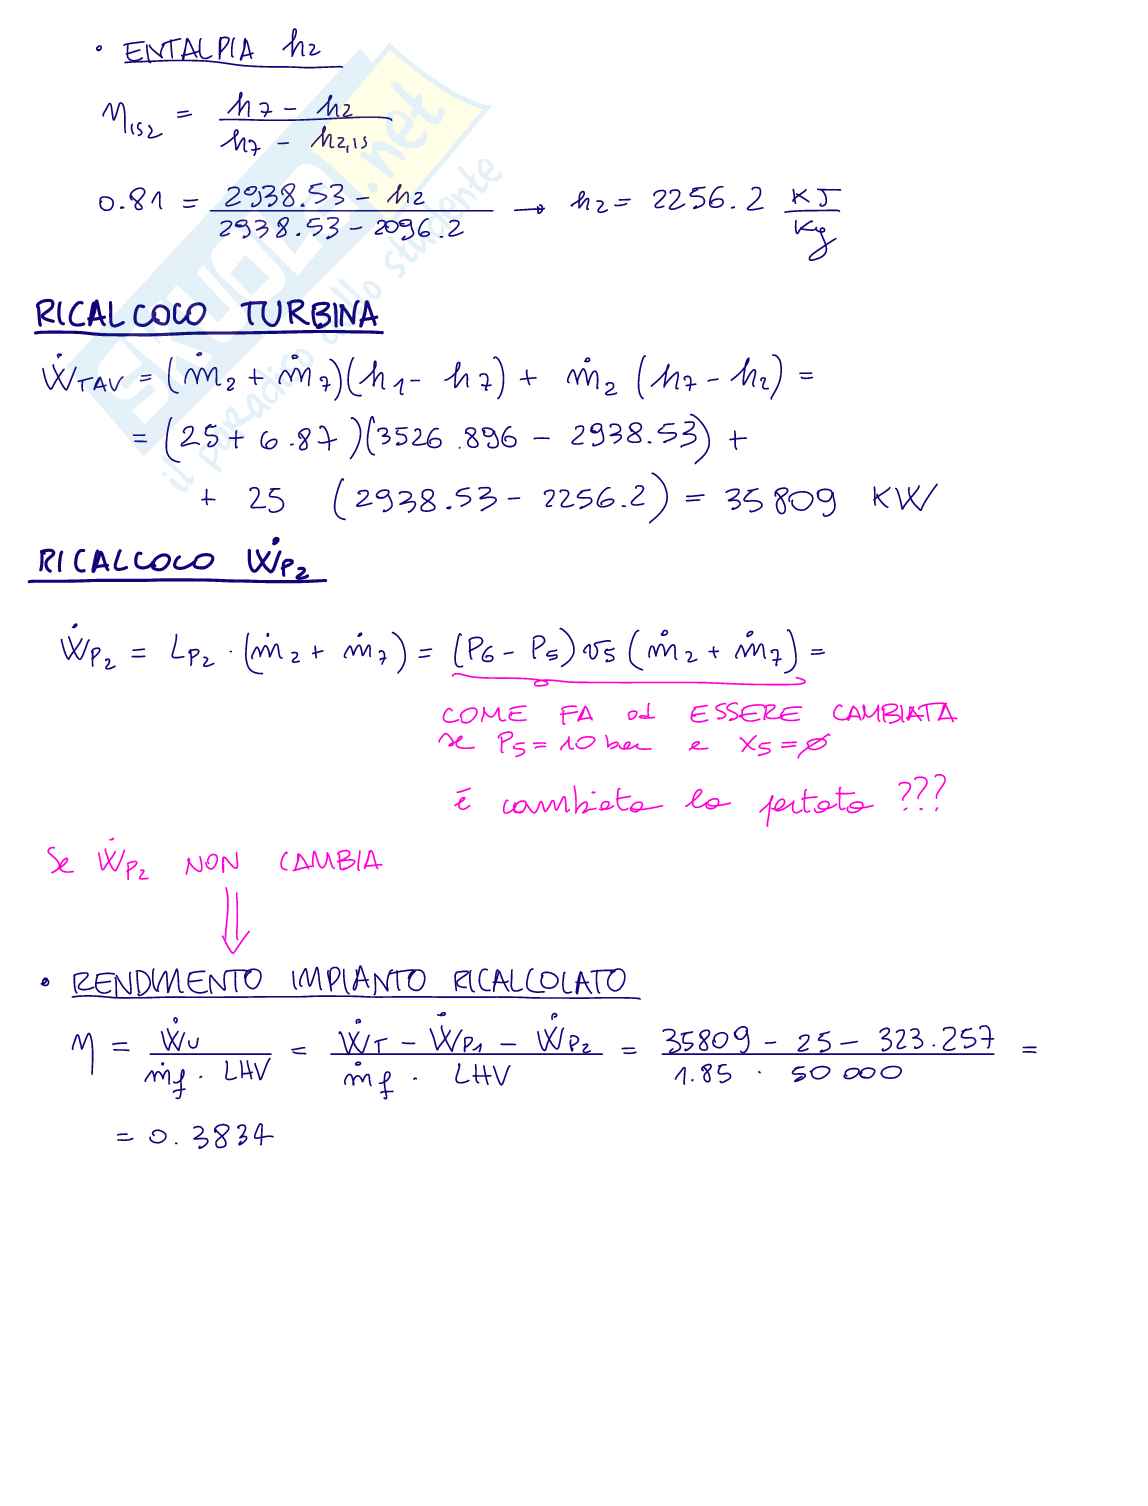 • ENTALPIA h2
η_is2 = (h7 - h2) / (h7 - h2,is)
0.81 = (2938.53 - h2) / (2938.53 - 2096.2) → h2 = 2256.2 KJ/Kg
RICALCOCO TURBINA
Ẇ_TAV = (ṁ2 + ṁ7)(h1 - h7) + ṁ2 (h7 - h2) =
= (25 + 6.87)(3526.896 - 2938.53) +
+ 25 (2938.53 - 2256.2) = 35809 KW
RICALCOCO Ẇ_P2
Ẇ_P2 = L_P2 · (ṁ2 + ṁ7) = (P6 - P5) v5 (ṁ2 + ṁ7) =
COME FA ad ESSERE CAMBIATA
se P5 = 10 bar e x5 = ∅
è cambiata la portata ???
Se Ẇ_P2 NON CAMBIA
⇓
• RENDIMENTO IMPIANTO RICALCOLATO
η = Ẇ_U / (ṁf · LHV) = (Ẇ_T - Ẇ_P1 - Ẇ_P2) / (ṁf · LHV) = (35809 - 25 - 323.257) / (1.85 · 50 000) =
= 0.3834
SKUOLA.net
il paradiso dello studente